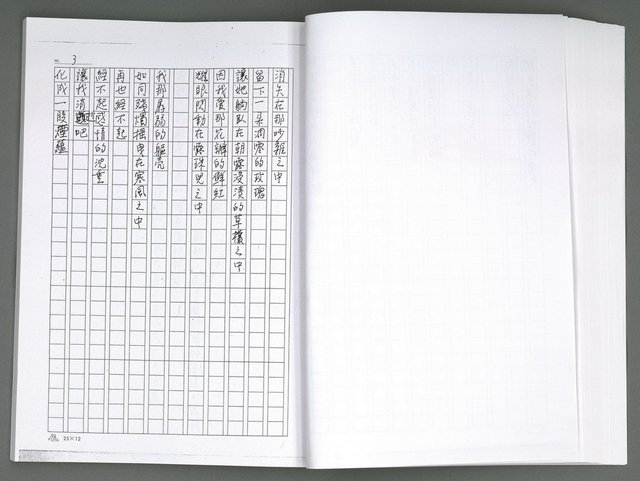 No. 3
消失在那吵雜之中
留下一朵凋零的玫瑰
讓她躺臥在朝露浸漬的草欉之中
因我愛那花瓣的鮮紅
耀眼閃動在露珠兒之中
我那孱弱的軀壳
如同殘燭搖曳在寒風之中
再也經不起
經不起感情的沈重
讓我消逝吧
化成一股煙蘊
25×12